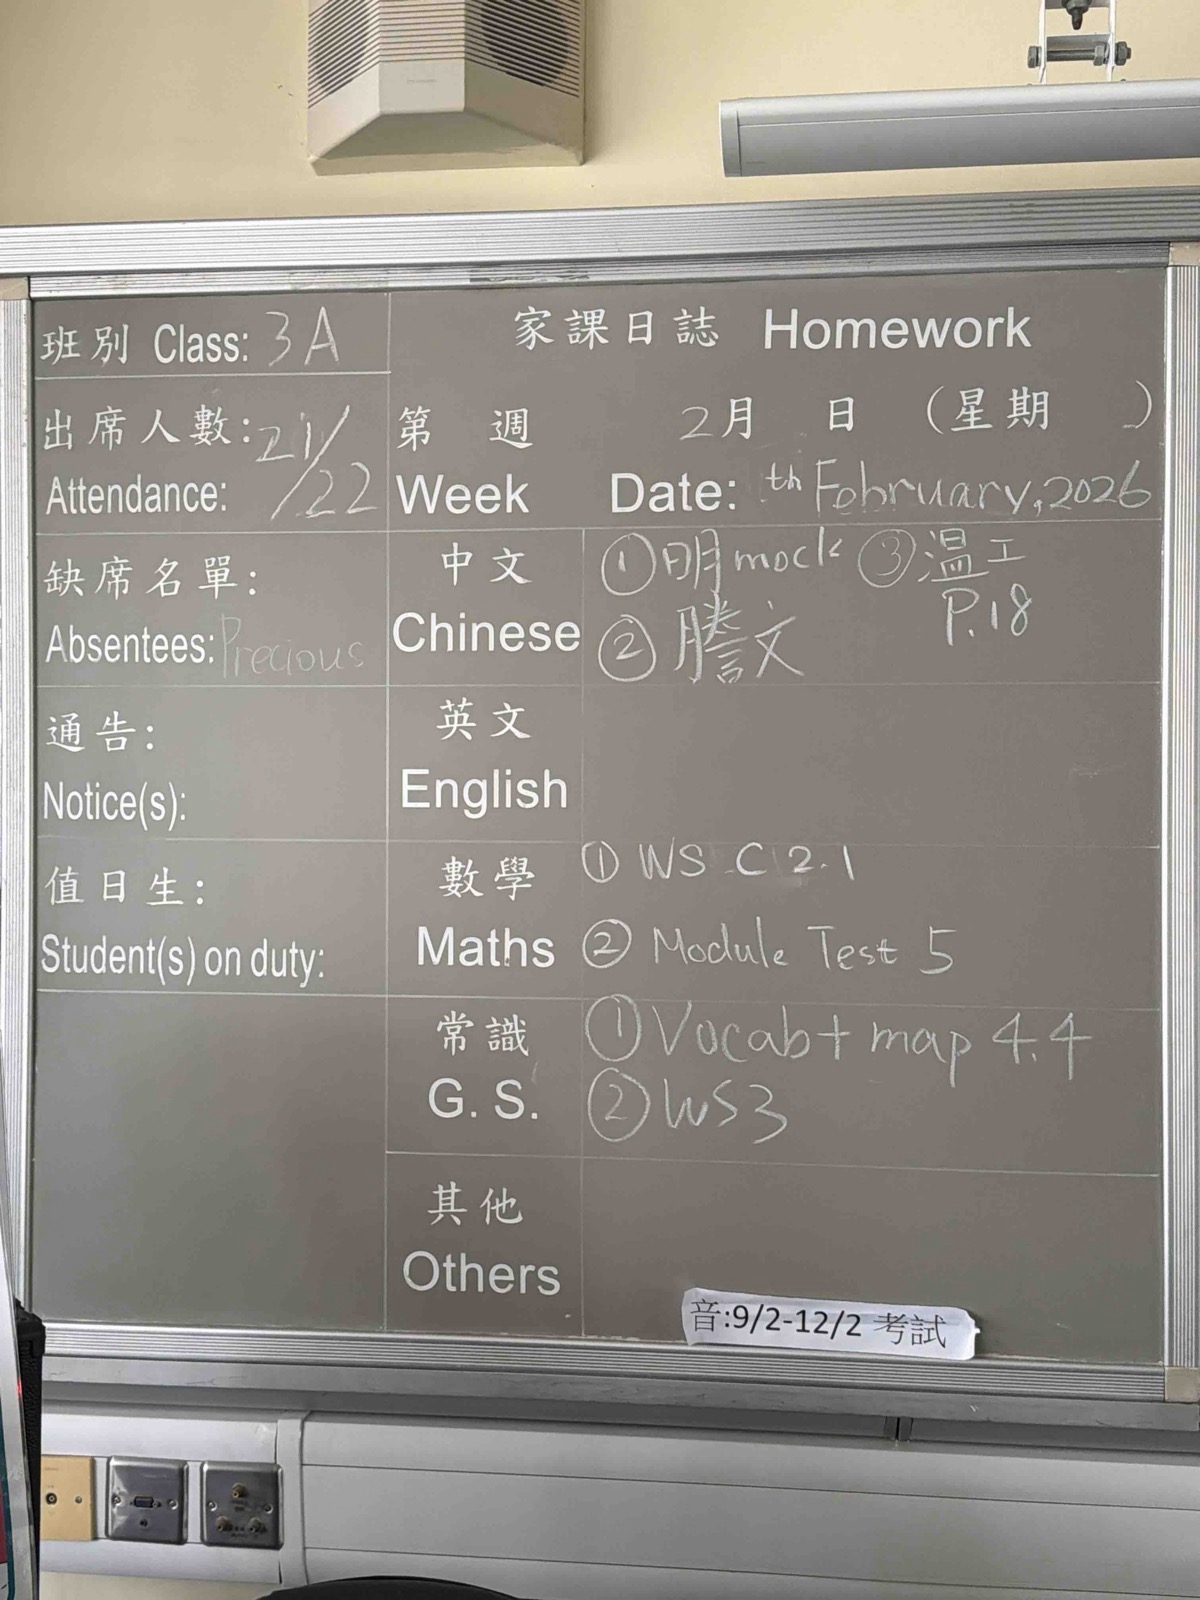 班別 Class: 3A
家課日誌 Homework
出席人數: 21/22
Attendance:
第 週 2月 日 (星期 )
Week Date: th February, 2026
缺席名單:
Absentees: Precious
中文 ① 明 mock ③ 温工
P.18
Chinese ② 謄文
通告:
Notice(s):
英文
English
值日生:
Student(s) on duty:
數學 ① WS C 2.1
Maths ② Module Test 5
常識 ① Vocab + map 4.4
G. S. ② WS3
其他
Others
音:9/2-12/2 考試